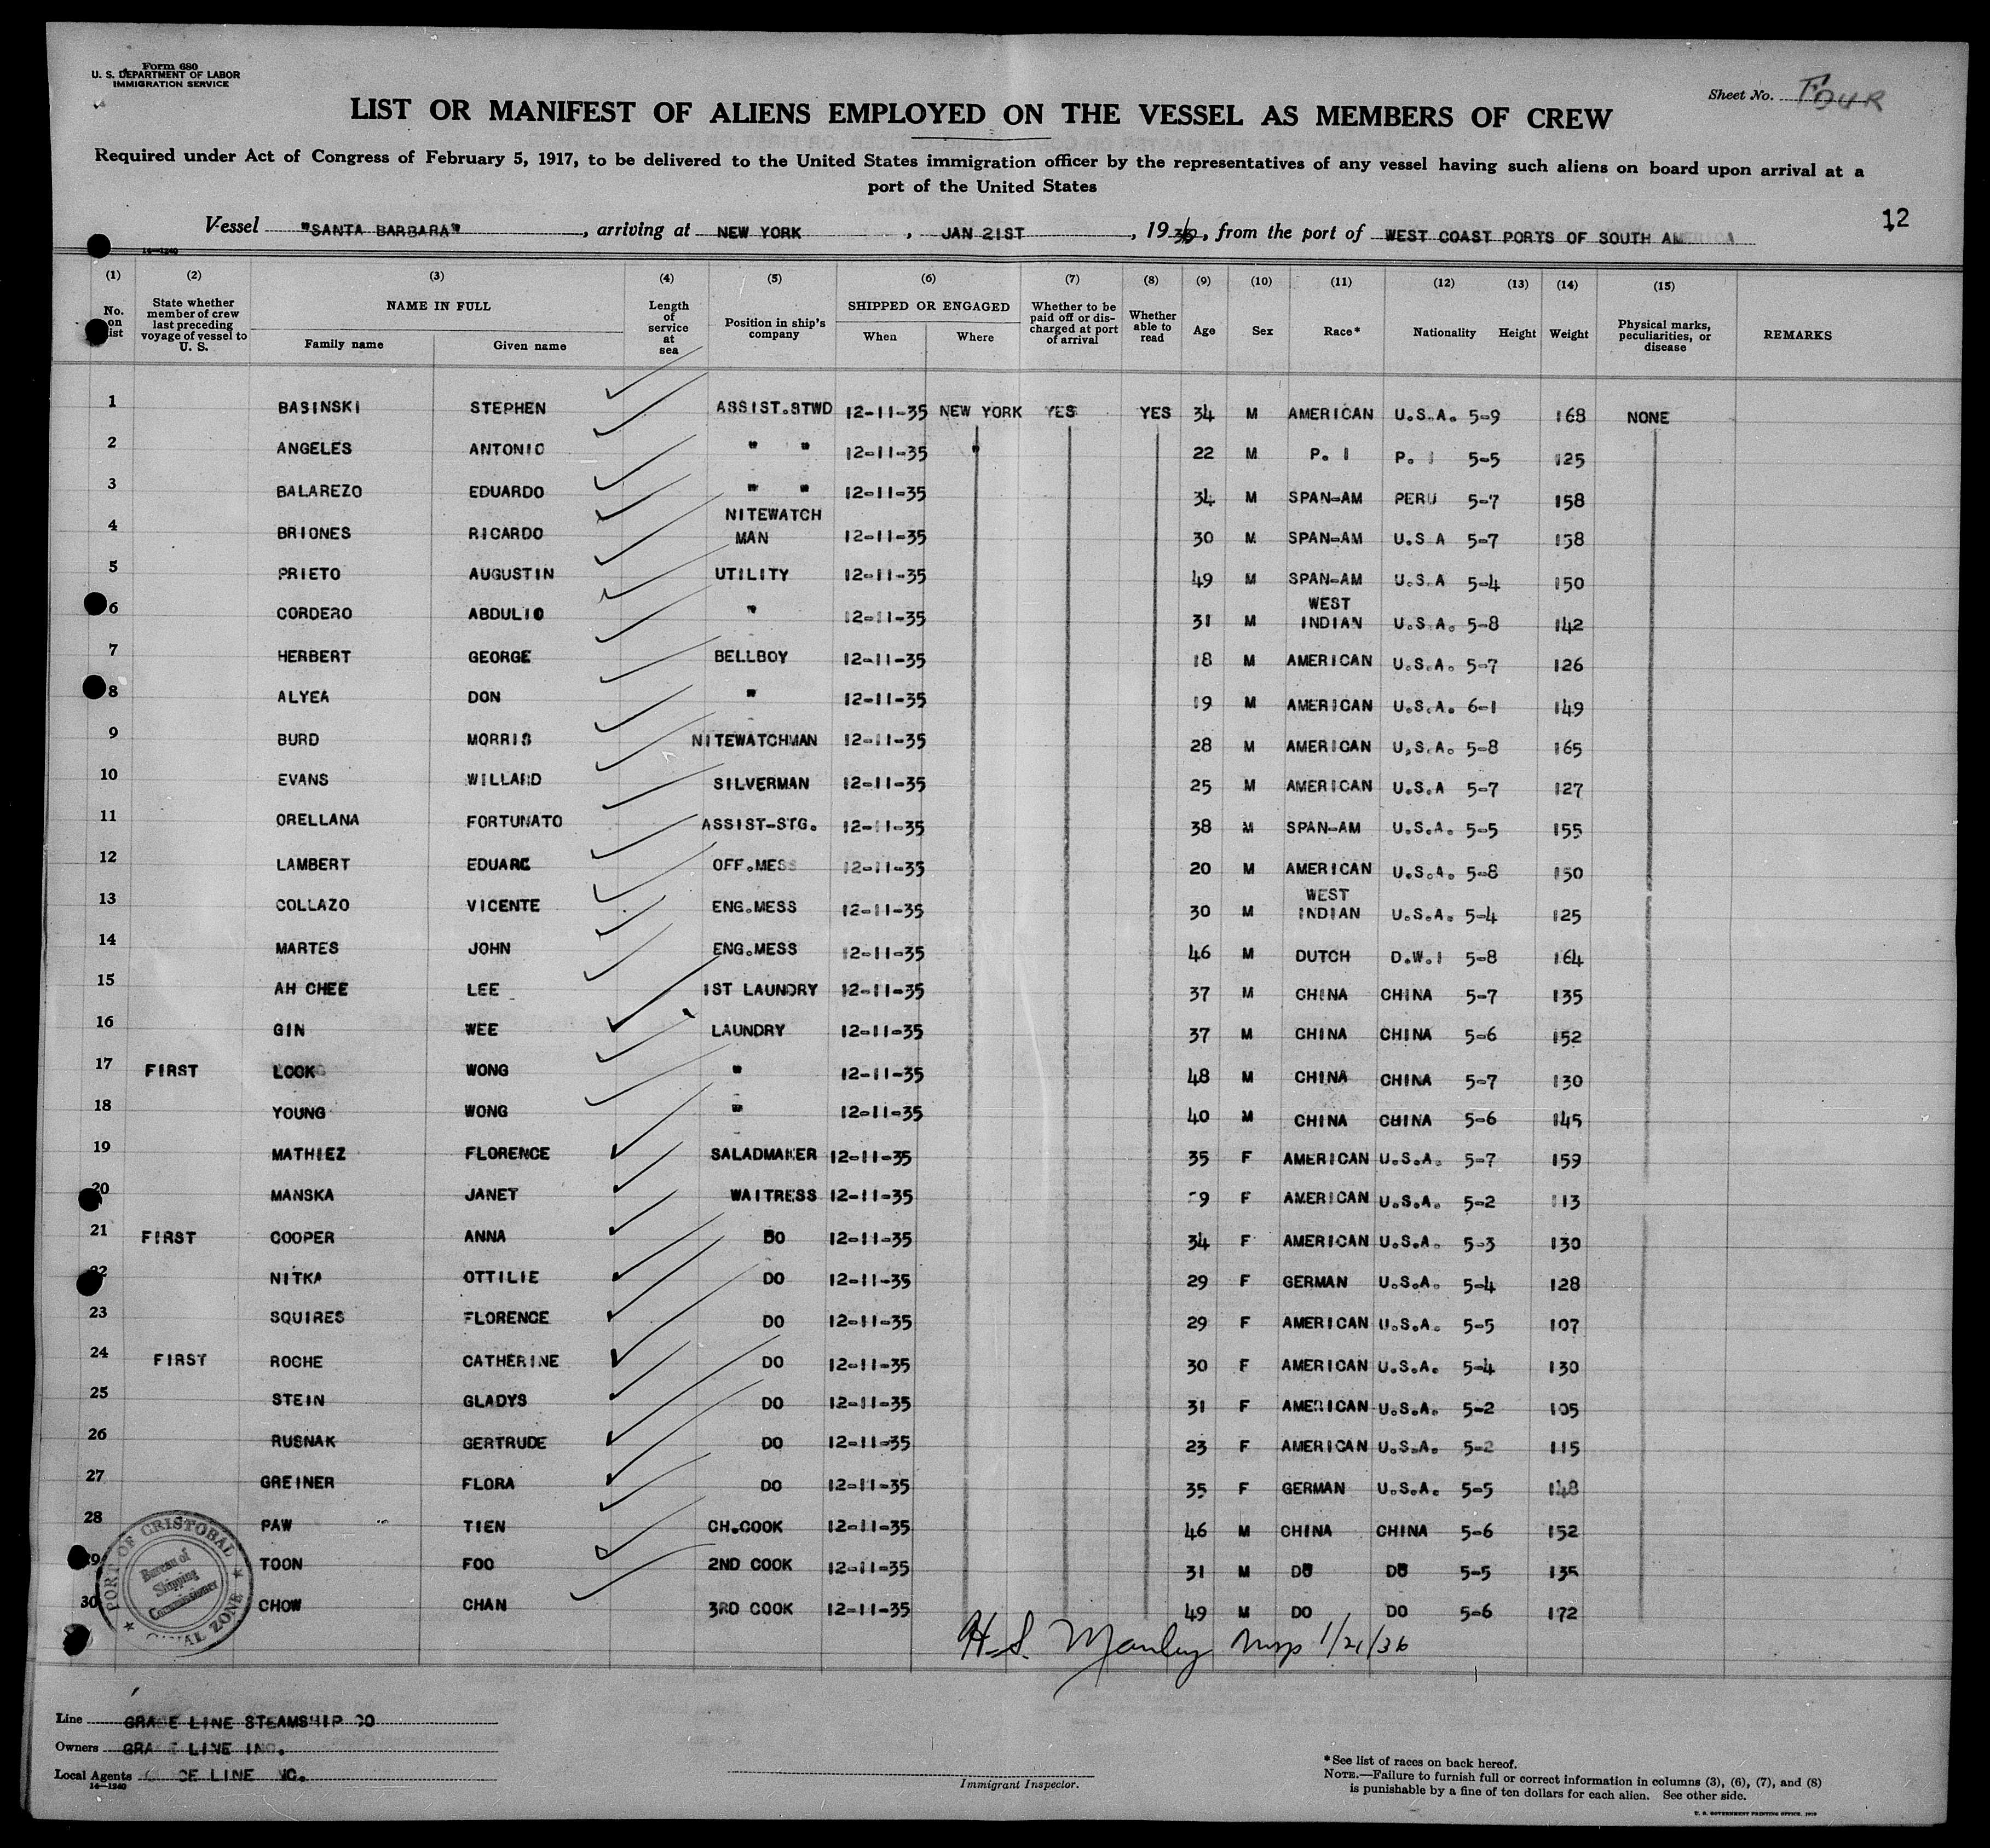 Form 680
U. S. DEPARTMENT OF LABOR
IMMIGRATION SERVICE
Sheet No. FOUR
LIST OR MANIFEST OF ALIENS EMPLOYED ON THE VESSEL AS MEMBERS OF CREW
Required under Act of Congress of February 5, 1917, to be delivered to the United States immigration officer by the representatives of any vessel having such aliens on board upon arrival at a
port of the United States
12
Vessel "SANTA BARBARA", arriving at NEW YORK, JAN 21ST, 1936, from the port of WEST COAST PORTS OF SOUTH AMERICA
14—1240
(1) (2) (3) (4) (5) (6) (7) (8) (9) (10) (11) (12) (13) (14) (15)
No. on list
State whether member of crew last preceding voyage of vessel to U. S.
NAME IN FULL
Family name Given name
Length of service at sea
Position in ship's company
SHIPPED OR ENGAGED
When Where
Whether to be paid off or discharged at port of arrival
Whether able to read
Age Sex Race* Nationality Height Weight
Physical marks, peculiarities, or disease
REMARKS
1 BASINSKI STEPHEN ASSIST.STWD 12-11-35 NEW YORK YES YES 34 M AMERICAN U.S.A. 5-9 168 NONE
2 ANGELES ANTONIO " " 12-11-35 " 22 M P. I P. I 5-5 125
3 BALAREZO EDUARDO " " 12-11-35 34 M SPAN-AM PERU 5-7 158
4 BRIONES RICARDO NITEWATCH MAN 12-11-35 30 M SPAN-AM U.S A 5-7 158
5 PRIETO AUGUSTIN UTILITY 12-11-35 49 M SPAN-AM U.S.A 5-4 150
6 CORDERO ABDULIO " 12-11-35 31 M WEST INDIAN U.S.A. 5-8 142
7 HERBERT GEORGE BELLBOY 12-11-35 18 M AMERICAN U.S.A. 5-7 126
8 ALYEA DON " 12-11-35 19 M AMERICAN U.S.A. 6-1 149
9 BURD MORRIS NITEWATCHMAN 12-11-35 28 M AMERICAN U.S.A. 5-8 165
10 EVANS WILLARD SILVERMAN 12-11-35 25 M AMERICAN U.S.A 5-7 127
11 ORELLANA FORTUNATO ASSIST-STG. 12-11-35 38 M SPAN-AM U.S.A. 5-5 155
12 LAMBERT EDUARC OFF.MESS 12-11-35 20 M AMERICAN U.S.A. 5-8 150
13 COLLAZO VICENTE ENG.MESS 12-11-35 30 M WEST INDIAN U.S.A. 5-4 125
14 MARTES JOHN ENG.MESS 12-11-35 46 M DUTCH D.W.I 5-8 164
15 AH CHEE LEE 1ST LAUNDRY 12-11-35 37 M CHINA CHINA 5-7 135
16 GIN WEE LAUNDRY 12-11-35 37 M CHINA CHINA 5-6 152
17 FIRST LOOK WONG " 12-11-35 48 M CHINA CHINA 5-7 130
18 YOUNG WONG " 12-11-35 40 M CHINA CHINA 5-6 145
19 MATHIEZ FLORENCE SALADMAKER 12-11-35 35 F AMERICAN U.S.A. 5-7 159
20 MANSKA JANET WAITRESS 12-11-35 F AMERICAN U.S.A. 5-2 113
21 FIRST COOPER ANNA DO 12-11-35 34 F AMERICAN U.S.A. 5-3 130
22 NITKA OTTILIE DO 12-11-35 29 F GERMAN U.S.A. 5-4 128
23 SQUIRES FLORENCE DO 12-11-35 29 F AMERICAN U.S.A. 5-5 107
24 FIRST ROCHE CATHERINE DO 12-11-35 30 F AMERICAN U.S.A. 5-4 130
25 STEIN GLADYS DO 12-11-35 31 F AMERICAN U.S.A. 5-2 105
26 RUSNAK GERTRUDE DO 12-11-35 23 F AMERICAN U.S.A. 5-2 115
27 GREINER FLORA DO 12-11-35 35 F GERMAN U.S.A. 5-5 148
28 PAW TIEN CH.COOK 12-11-35 46 M CHINA CHINA 5-6 152
29 TOON FOO 2ND COOK 12-11-35 31 M DO DO 5-5 135
30 CHOW CHAN 3RD COOK 12-11-35 49 M DO DO 5-6 172
PORT OF CRISTOBAL
Bureau of
Shipping
Commissioner
CANAL ZONE
H.S. Manley 1/21/36
Line GRACE LINE STEAMSHIP CO
Owners GRACE LINE INC.
Local Agents GRACE LINE INC.
14—1240
Immigrant Inspector.
*See list of races on back hereof.
NOTE.—Failure to furnish full or correct information in columns (3), (6), (7), and (8)
is punishable by a fine of ten dollars for each alien. See other side.
U. S. GOVERNMENT PRINTING OFFICE, 1929